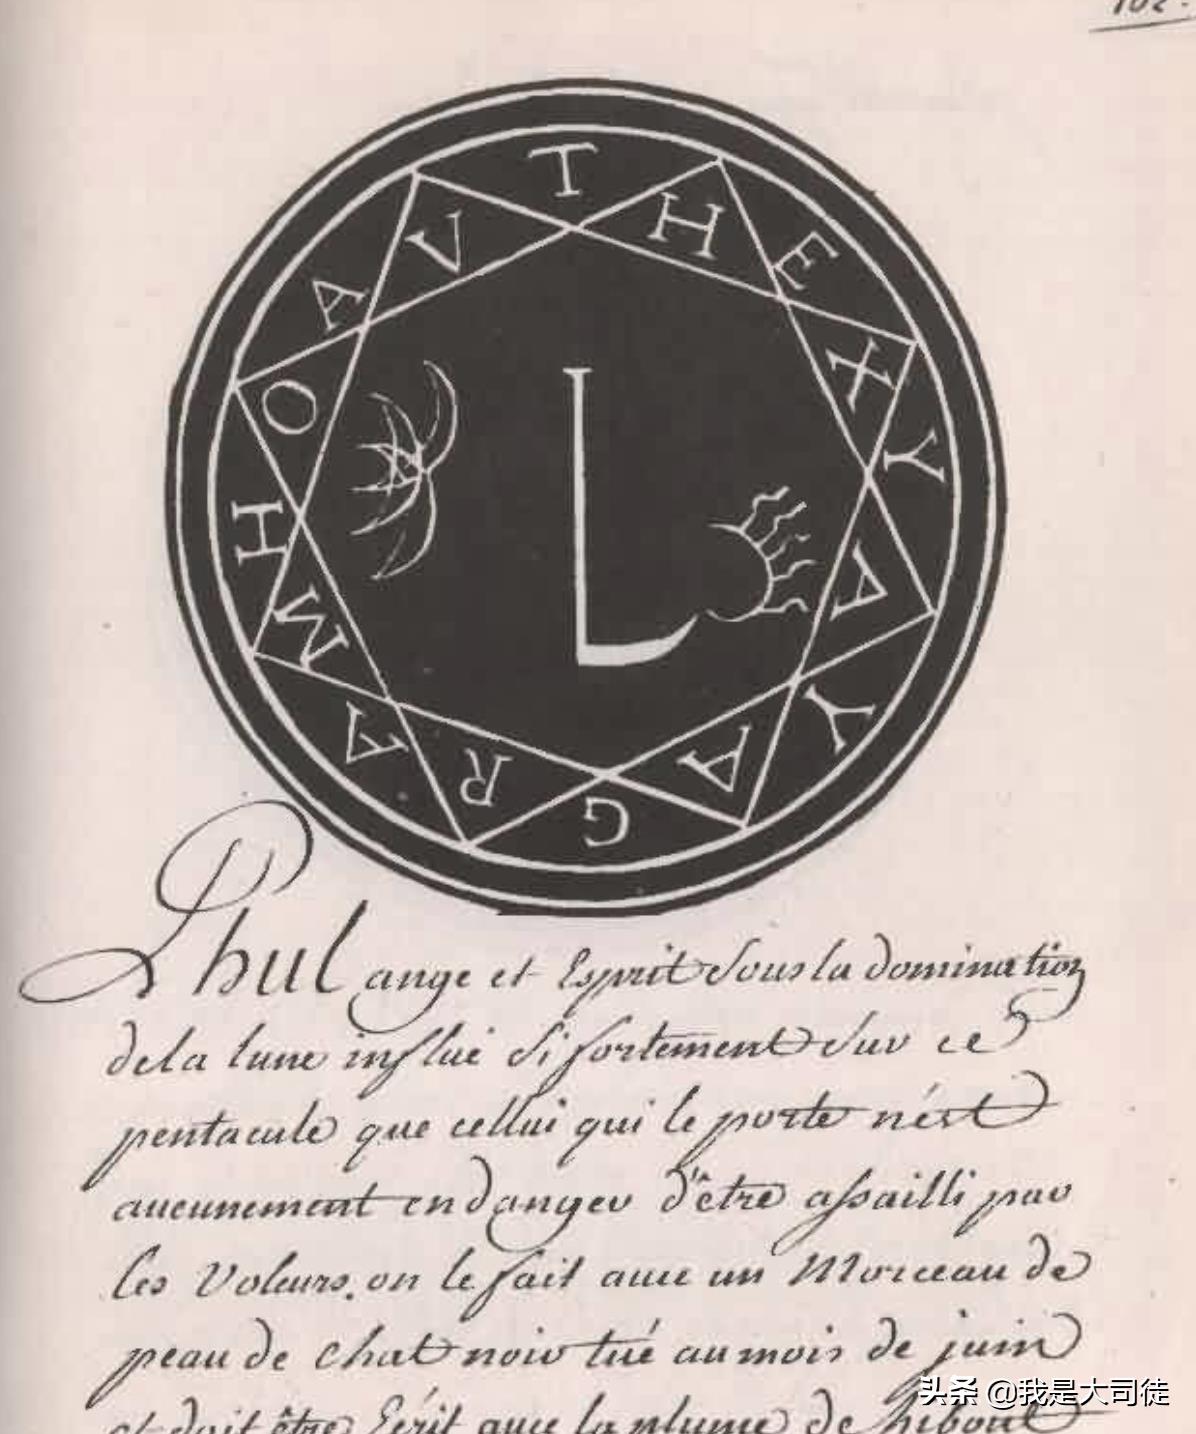 102.
T H E X Y A Y A G R A M H O A V
L
Phul ange et Esprit Sous la domination
de la lune influe Si fortement Sur ce
pentacule que cellui qui le porte n'ést
aucunement en danger d'être assailli par
les Voleurs. on le fait avec un Morceau de
peau de Chat noir tué au mois de juin
et doit être Ecrit avec la plume de hiboux
头条 @我是大司徒